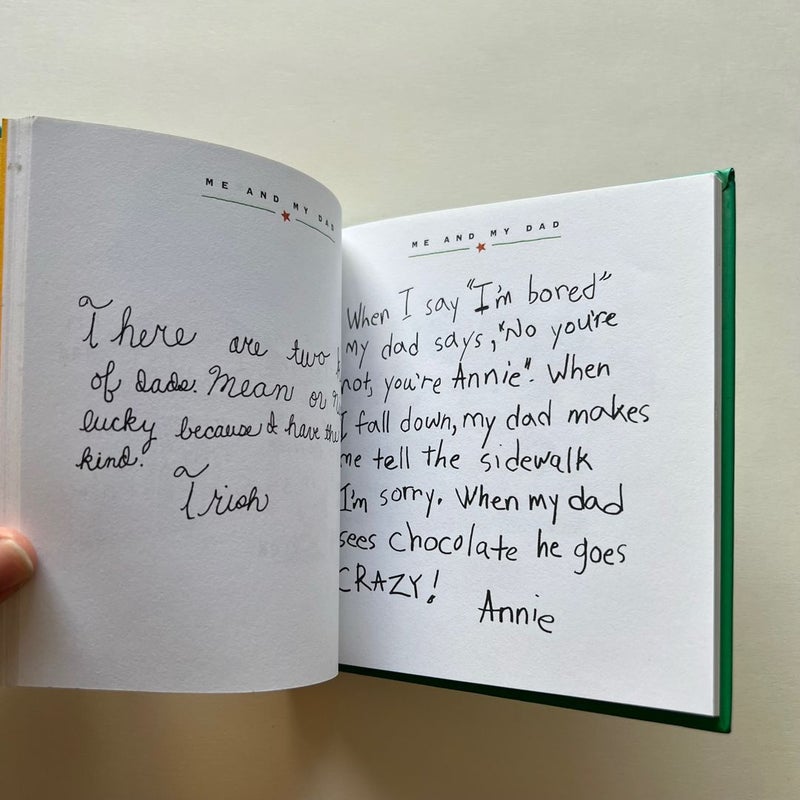 ME AND MY DAD
There are two
of dads. Mean or
lucky because I have the
kind.
Trish
ME AND MY DAD
When I say "I'm bored"
my dad says, "No you're
not, you're Annie". When
I fall down, my dad makes
me tell the sidewalk
I'm sorry. When my dad
sees chocolate he goes
CRAZY!
Annie